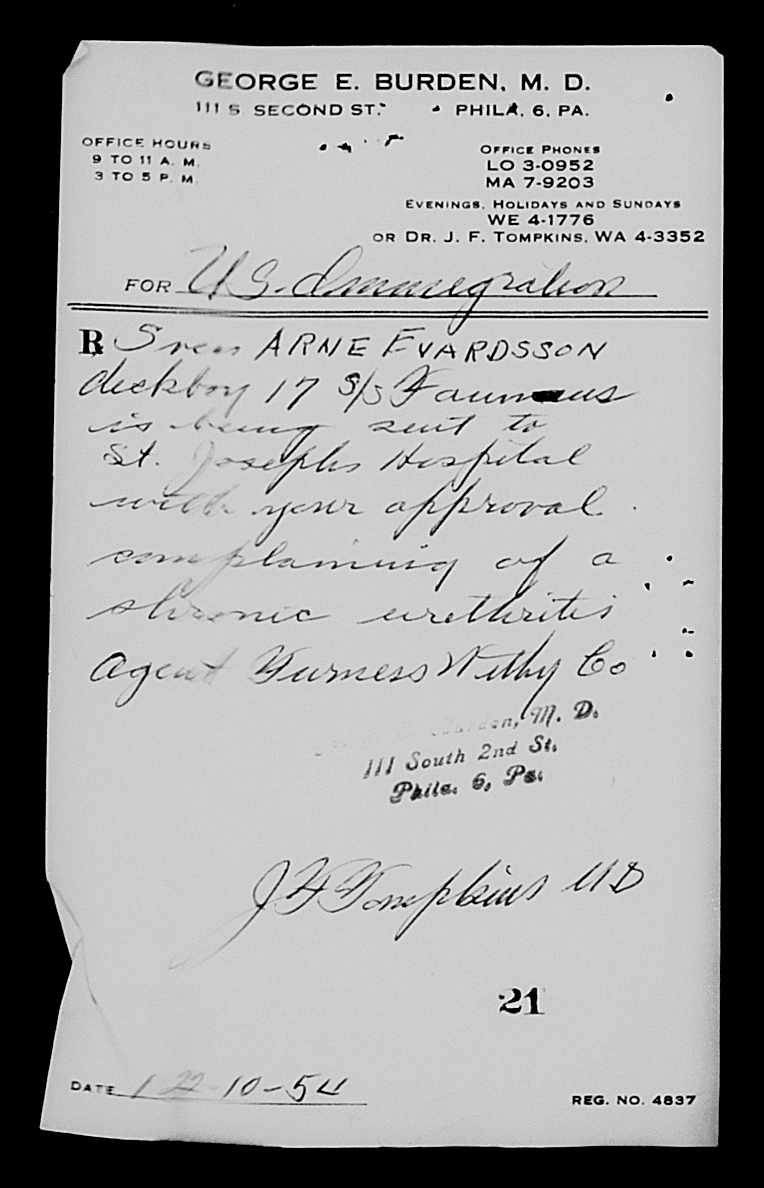 GEORGE E. BURDEN, M. D.
111 S. SECOND ST. PHILA. 6, PA.
OFFICE HOURS
9 TO 11 A. M.
3 TO 5 P. M.
OFFICE PHONES
LO 3-0952
MA 7-9203
EVENINGS, HOLIDAYS AND SUNDAYS
WE 4-1776
OR DR. J. F. TOMPKINS, WA 4-3352
FOR U.S. Immigration
℞ Sven ARNE EVARDSSON
deckboy 17 S/S
is being sent to
St. Josephs Hospital
with your approval
complaining of a
chronic urethritis
Agent Furness Withy Co
Burden, M. D.
111 South 2nd St.
Phila. 6, Pa.
J F Tompkins MD
21
DATE 12-10-54
REG. NO. 4837